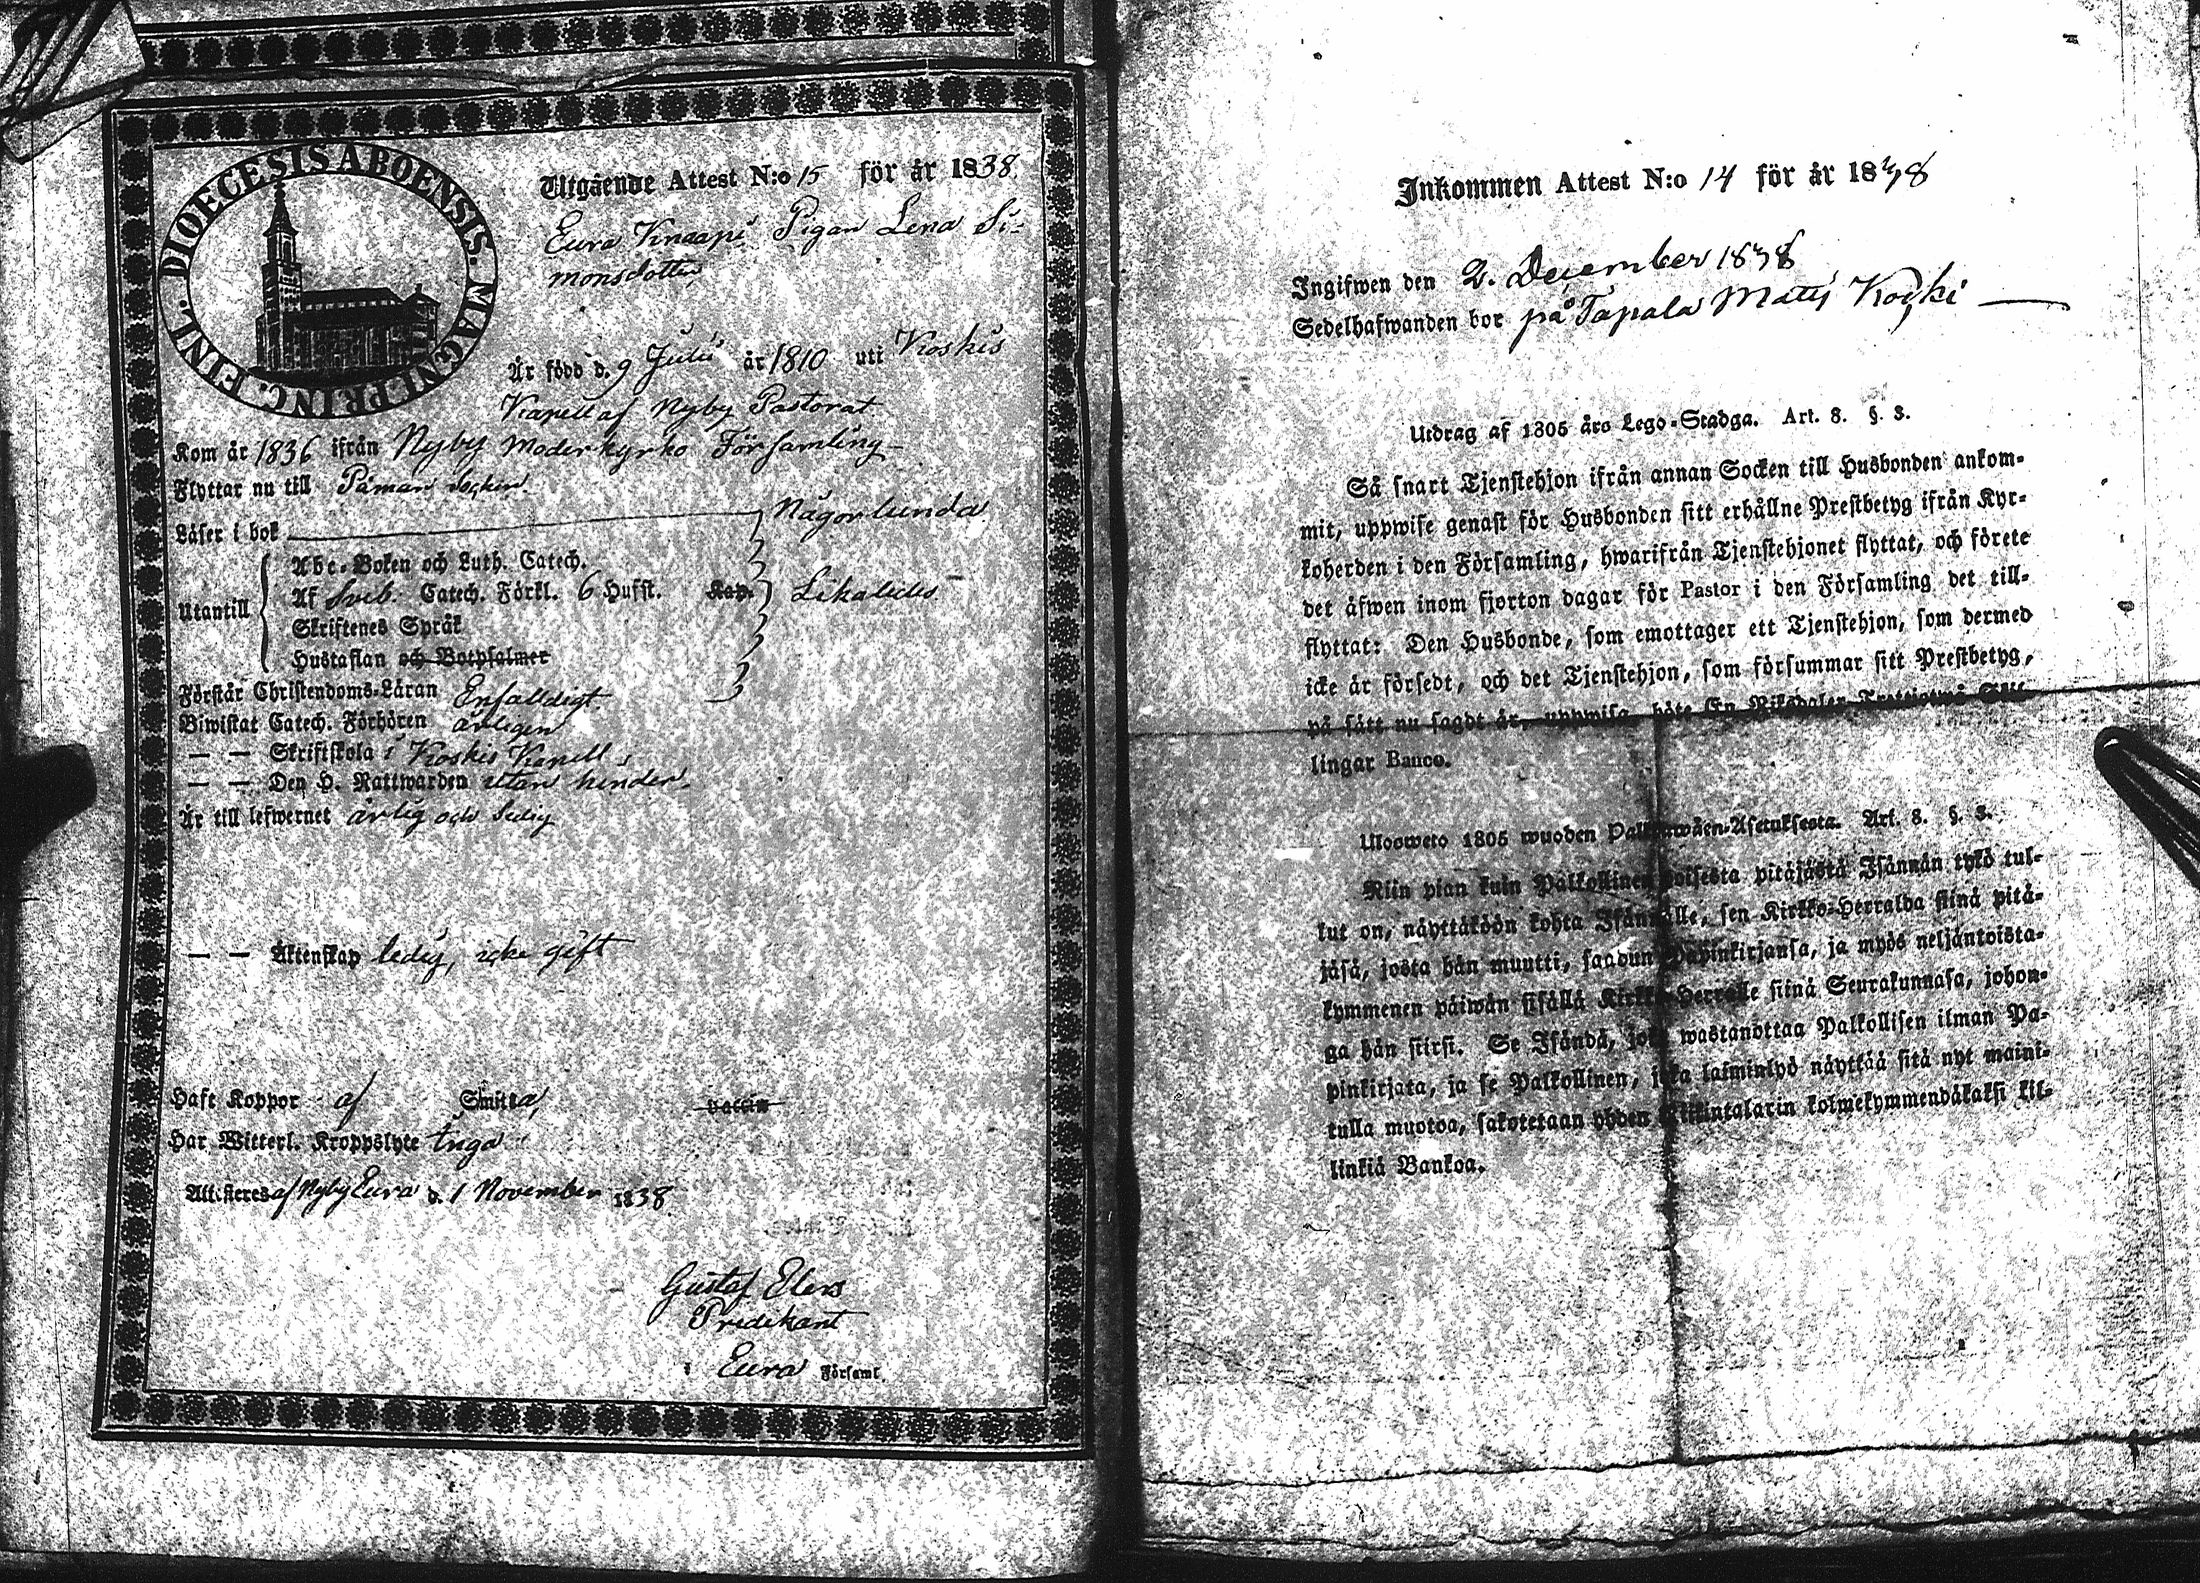 DIOECESIS ABOENSIS. MAGNI PRINC. FINL.
Utgående Attest N:o 15 för år 1838.
Eura Knaapi Pigan Lena Si-
monsdotter,
Är född d. 9 Julii år 1810 uti Koskis
Kapell af Nyby Pastorat
Kom år 1836 ifrån Nyby Moderkyrko Församling
Flyttar nu till Påmar Socken.
Läser i bok Någorlunda
Abc-Boken och Luth. Catech.
Utantill
Af Sveb. Catech. Förkl. 6 Hufst. Kap. Likaledes
Skriftenes Språk
Hustaflan och Botpsalmer
Förstår Christendoms-Läran Enfalldigt
Biwistat Catech. Förhören årligen
— — Skriftskola i Koskis Kapell,
— — Den H. Nattwarden utan hinder.
Är till lefwernet ärlig och Sedig
— — Äktenskap ledig, icke gift
Haft Koppor af Smitta, vaccin
Har Witterl. Kroppslyte Inga
Attesteres af Nyby Eura d. 1 November 1838
Gustaf Elers
Predikant
i Eura Församl.
Inkommen Attest N:o 14 för år 1838
Ingifwen den 2. December 1838
Sedelhafwanden bor på Tapala Matts Koski
Utdrag af 1805 års Lego-Stadga. Art. 8. §. 3.
Så snart Tjenstehjon ifrån annan Socken till Husbonden ankom-
mit, uppwise genast för Husbonden sitt erhållne Prestbetyg ifrån Kyr-
koherden i den Församling, hwarifrån Tjenstehjonet flyttat, och förete
det äfwen inom fjorton dagar för Pastor i den Församling det till-
flyttat: Den Husbonde, som emottager ett Tjenstehjon, som dermed
icke är försedt, och det Tjenstehjon, som försummar sitt Prestbetyg,
på sätt nu sagdt är, uppwisa, böte En Riksdaler Trettiotwå Skil-
lingar Banco.
Uloosweto 1805 wuoden Palkkawäen-Asetuksesta. Art. 8. §. 3.
Niin pian kuin Palkollinen toisesta pitäjästä Isännän tykö tul-
lut on, näyttäköön kohta Isännälle, sen Kirkko-Herralda siinä pitä-
jäsä, josta hän muutti, saadun Papinkirjansa, ja myös neljäntoista-
kymmenen päiwän sisällä Kirkko-Herralle siinä Seurakunnasa, johon-
ga hän siirsi. Se Isändä, joka wastanottaa Palkollisen ilman Pa-
pinkirjata, ja se Palkollinen, joka laiminlyö näyttää sitä nyt maini-
tulla muotoa, sakotetaan yhden Riikintalarin kolmekymmendäkaksi kil-
linkiä Bankoa.